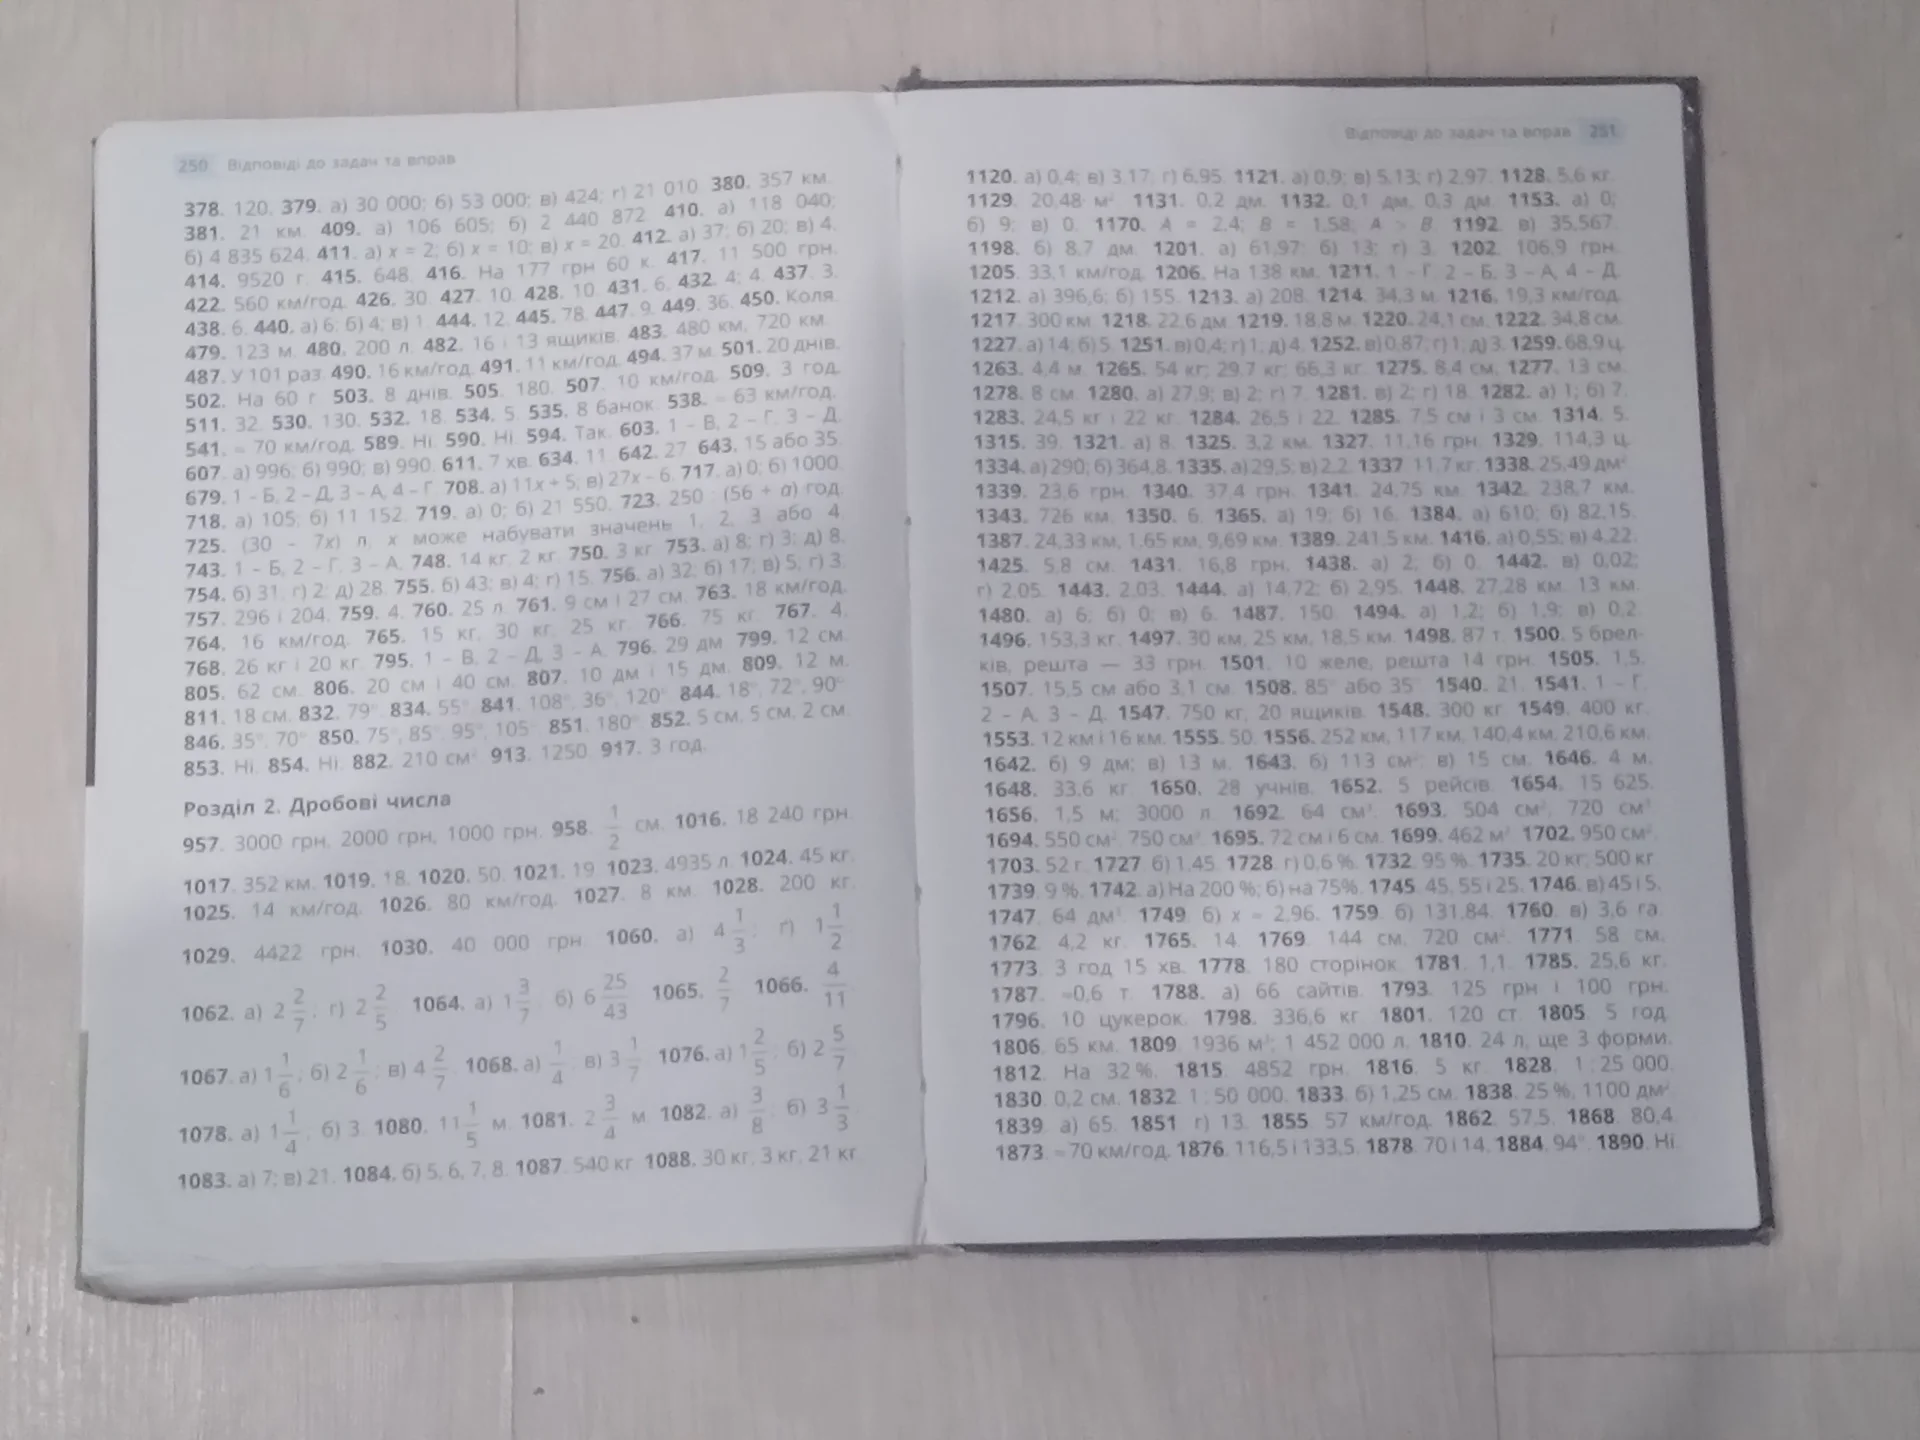 250 Відповіді до задач та вправ
378. 120. 379. а) 30 000; б) 53 000; в) 424; г) 21 010. 380. 357 км.
381. 21 км. 409. а) 106 605; б) 2 440 872. 410. а) 118 040;
б) 4 835 624. 411. а) x = 2; б) x = 10; в) x = 20. 412. а) 37; б) 20; в) 4.
414. 9520 г. 415. 648. 416. На 177 грн 60 к. 417. 11 500 грн.
422. 560 км/год. 426. 30. 427. 10. 428. 10. 431. 6. 432. 4; 4. 437. 3.
438. 6. 440. а) 6; б) 4; в) 1. 444. 12. 445. 78. 447. 9. 449. 36. 450. Коля.
479. 123 м. 480. 200 л. 482. 16 і 13 ящиків. 483. 480 км, 720 км.
487. У 101 раз. 490. 16 км/год. 491. 11 км/год. 494. 37 м. 501. 20 днів.
502. На 60 г. 503. 8 днів. 505. 180. 507. 10 км/год. 509. 3 год.
511. 32. 530. 130. 532. 18. 534. 5. 535. 8 банок. 538. ≈ 63 км/год.
541. ≈ 70 км/год. 589. Ні. 590. Ні. 594. Так. 603. 1 – В, 2 – Г, 3 – Д.
607. а) 996; б) 990; в) 990. 611. 7 хв. 634. 11. 642. 27. 643. 15 або 35.
679. 1 – Б, 2 – Д, 3 – А, 4 – Г. 708. а) 11x + 5; в) 27x – 6. 717. а) 0; б) 1000.
718. а) 105; б) 11 152. 719. а) 0; б) 21 550. 723. 250 : (56 + a) год.
725. (30 – 7x) л, x може набувати значень 1, 2, 3 або 4.
743. 1 – Б, 2 – Г, 3 – А. 748. 14 кг, 2 кг. 750. 3 кг. 753. а) 8; г) 3; д) 8.
754. б) 31; г) 2; д) 28. 755. б) 43; в) 4; г) 15. 756. а) 32; б) 17; в) 5; г) 3.
757. 296 і 204. 759. 4. 760. 25 л. 761. 9 см і 27 см. 763. 18 км/год.
764. 16 км/год. 765. 15 кг, 30 кг, 25 кг. 766. 75 кг. 767. 4.
768. 26 кг і 20 кг. 795. 1 – В, 2 – Д, 3 – А. 796. 29 дм. 799. 12 см.
805. 62 см. 806. 20 см і 40 см. 807. 10 дм і 15 дм. 809. 12 м.
811. 18 см. 832. 79°. 834. 55°. 841. 108°, 36°, 120°. 844. 18°, 72°, 90°.
846. 35°, 70°. 850. 75°, 85°, 95°, 105°. 851. 180°. 852. 5 см, 5 см, 2 см.
853. Ні. 854. Ні. 882. 210 см². 913. 1250. 917. 3 год.
Розділ 2. Дробові числа
957. 3000 грн, 2000 грн, 1000 грн. 958. 1/2 см. 1016. 18 240 грн.
1017. 352 км. 1019. 18. 1020. 50. 1021. 19. 1023. 4935 л. 1024. 45 кг.
1025. 14 км/год. 1026. 80 км/год. 1027. 8 км. 1028. 200 кг.
1029. 4422 грн. 1030. 40 000 грн. 1060. а) 4 1/3; г) 1 1/2.
1062. а) 2 2/7; г) 2 2/5. 1064. а) 1 3/7; б) 6 25/43. 1065. 2/7. 1066. 4/11.
1067. а) 1 1/6; б) 2 1/6; в) 4 2/7. 1068. а) 1/4; в) 3 1/7. 1076. а) 1 2/5; б) 2 5/7.
1078. а) 1 1/4; б) 3. 1080. 11 1/5 м. 1081. 2 3/4 м. 1082. а) 3/8; б) 3 1/3.
1083. а) 7; в) 21. 1084. б) 5, 6, 7, 8. 1087. 540 кг. 1088. 30 кг, 3 кг, 21 кг.
Відповіді до задач та вправ 251
1120. а) 0,4; в) 3,17; г) 6,95. 1121. а) 0,9; в) 5,13; г) 2,97. 1128. 5,6 кг.
1129. 20,48 м². 1131. 0,2 дм. 1132. 0,1 дм, 0,3 дм. 1153. а) 0;
б) 9; в) 0. 1170. A = 2,4; B = 1,58; A > B. 1192. в) 35,567.
1198. б) 8,7 дм. 1201. а) 61,97; б) 13; г) 3. 1202. 106,9 грн.
1205. 33,1 км/год. 1206. На 138 км. 1211. 1 – Г, 2 – Б, 3 – А, 4 – Д.
1212. а) 396,6; б) 155. 1213. а) 208. 1214. 34,3 м. 1216. 19,3 км/год.
1217. 300 км. 1218. 22,6 дм. 1219. 18,8 м. 1220. 24,1 см. 1222. 34,8 см.
1227. а) 14; б) 5. 1251. в) 0,4; г) 1; д) 4. 1252. в) 0,87; г) 1; д) 3. 1259. 68,9 ц.
1263. 4,4 м. 1265. 54 кг; 29,7 кг; 66,3 кг. 1275. 8,4 см. 1277. 13 см.
1278. 8 см. 1280. а) 27,9; в) 2; г) 7. 1281. в) 2; г) 18. 1282. а) 1; б) 7.
1283. 24,5 кг і 22 кг. 1284. 26,5 і 22. 1285. 7,5 см і 3 см. 1314. 5.
1315. 39. 1321. а) 8. 1325. 3,2 км. 1327. 11,16 грн. 1329. 114,3 ц.
1334. а) 290; б) 364,8. 1335. а) 29,5; в) 2,2. 1337. 11,7 кг. 1338. 25,49 дм².
1339. 23,6 грн. 1340. 37,4 грн. 1341. 24,75 км. 1342. 238,7 км.
1343. 726 км. 1350. 6. 1365. а) 19; б) 16. 1384. а) 610; б) 82,15.
1387. 24,33 км, 1,65 км, 9,69 км. 1389. 241,5 км. 1416. а) 0,55; в) 4,22.
1425. 5,8 см. 1431. 16,8 грн. 1438. а) 2; б) 0. 1442. в) 0,02;
г) 2,05. 1443. 2,03. 1444. а) 14,72; б) 2,95. 1448. 27,28 км. 13 км.
1480. а) 6; б) 0; в) 6. 1487. 150. 1494. а) 1,2; б) 1,9; в) 0,2.
1496. 153,3 кг. 1497. 30 км, 25 км, 18,5 км. 1498. 87 т. 1500. 5 брел-
ків, решта — 33 грн. 1501. 10 желе, решта 14 грн. 1505. 1,5.
1507. 15,5 см або 3,1 см. 1508. 85° або 35°. 1540. 21. 1541. 1 – Г,
2 – А, 3 – Д. 1547. 750 кг, 20 ящиків. 1548. 300 кг. 1549. 400 кг.
1553. 12 км і 16 км. 1555. 50. 1556. 252 км, 117 км, 140,4 км, 210,6 км.
1642. б) 9 дм; в) 13 м. 1643. б) 113 см²; в) 15 см. 1646. 4 м.
1648. 33,6 кг. 1650. 28 учнів. 1652. 5 рейсів. 1654. 15 625.
1656. 1,5 м; 3000 л. 1692. 64 см³. 1693. 504 см², 720 см³.
1694. 550 см², 750 см³. 1695. 72 см і 6 см. 1699. 462 м². 1702. 950 см².
1703. 52 г. 1727. б) 1,45. 1728. г) 0,6 %. 1732. 95 %. 1735. 20 кг; 500 кг.
1739. 9 %. 1742. а) На 200 %; б) на 75%. 1745. 45, 55 і 25. 1746. в) 45 і 5.
1747. 64 дм³. 1749. б) x = 2,96. 1759. б) 131,84. 1760. в) 3,6 га.
1762. 4,2 кг. 1765. 14. 1769. 144 см, 720 см². 1771. 58 см.
1773. 3 год 15 хв. 1778. 180 сторінок. 1781. 1,1. 1785. 25,6 кг.
1787. ≈0,6 т. 1788. а) 66 сайтів. 1793. 125 грн і 100 грн.
1796. 10 цукерок. 1798. 336,6 кг. 1801. 120 ст. 1805. 5 год.
1806. 65 км. 1809. 1936 м²; 1 452 000 л. 1810. 24 л, ще 3 форми.
1812. На 32 %. 1815. 4852 грн. 1816. 5 кг. 1828. 1 : 25 000.
1830. 0,2 см. 1832. 1 : 50 000. 1833. б) 1,25 см. 1838. 25 %, 1100 дм².
1839. а) 65. 1851. г) 13. 1855. 57 км/год. 1862. 57,5. 1868. 80,4.
1873. ≈ 70 км/год. 1876. 116,5 і 133,5. 1878. 70 і 14. 1884. 94°. 1890. Ні.